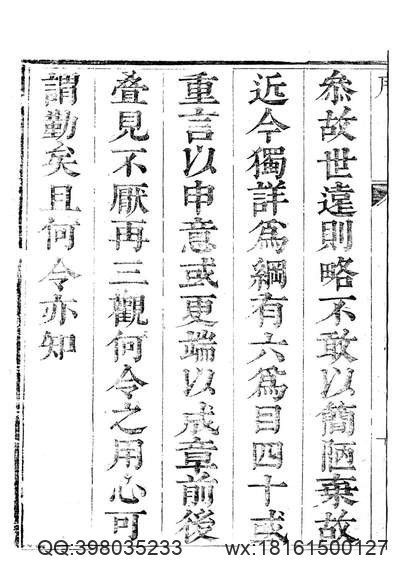 叅故世遠則略不敢以簡陋棄故
近今獨詳爲綱有六爲目四十或
重言以申意或更端以成章前後
叠見不厭再三觀何令之用心可
謂勤矣且何令亦知
QQ:398035233 wx:18161500127